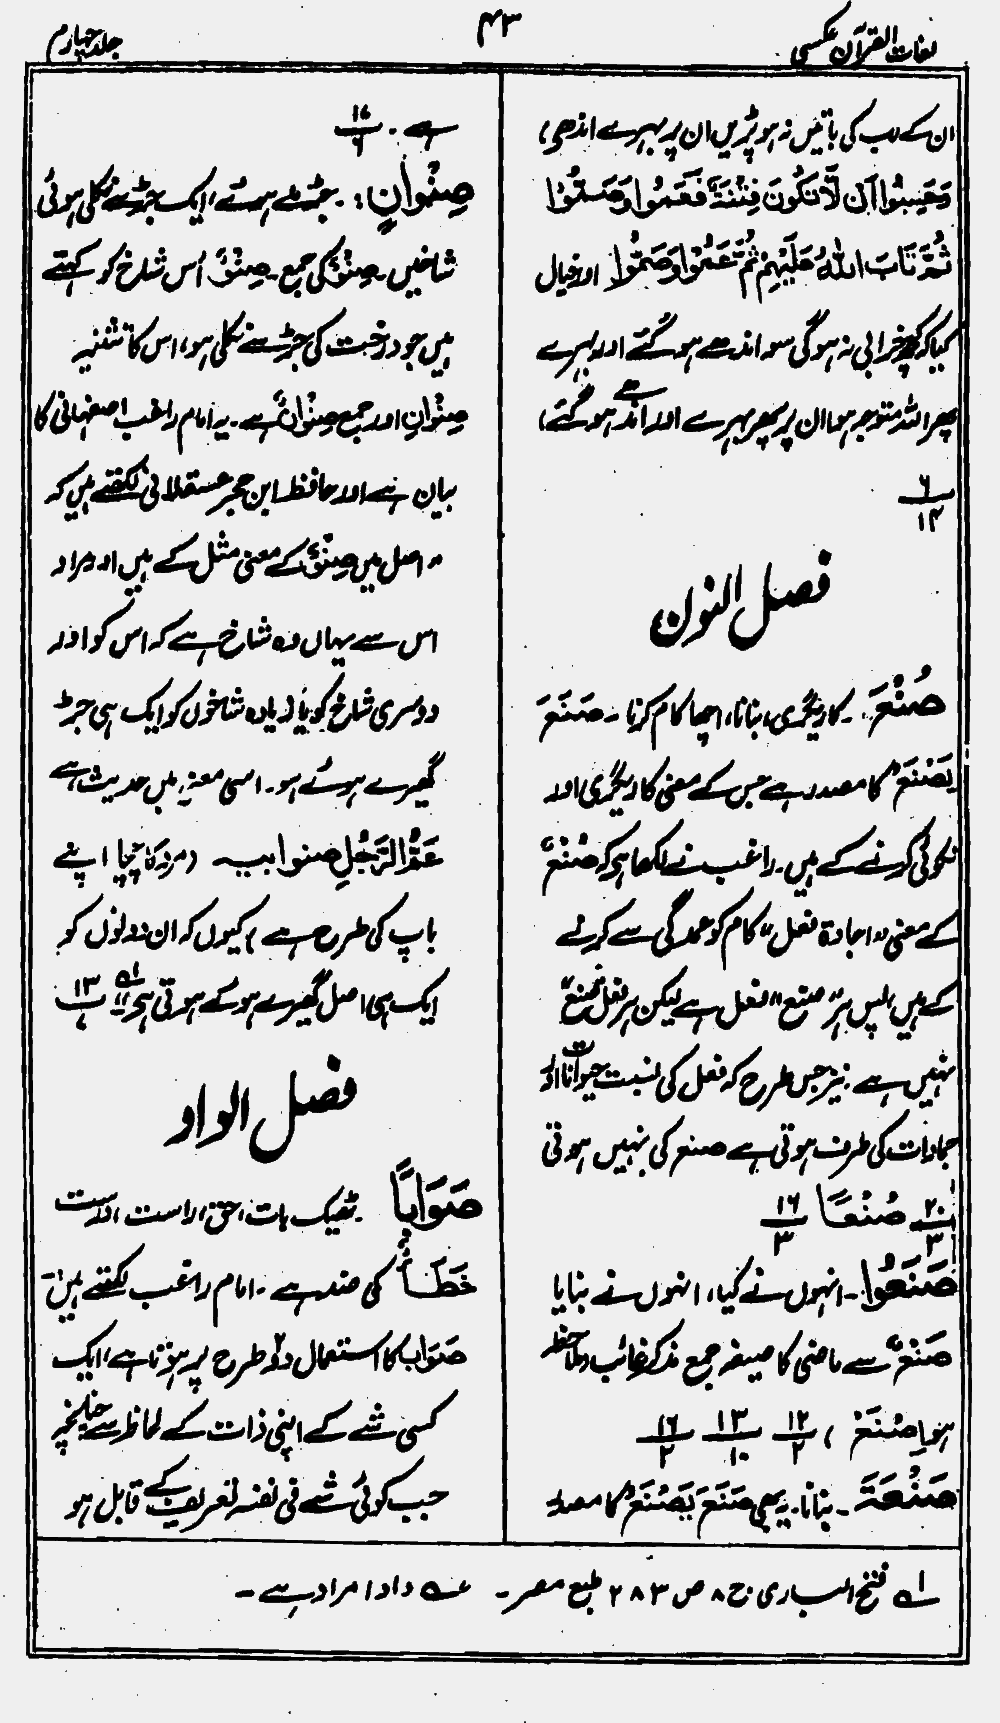 لغات القرآن عکسی
۴۳
جلد چہارم
ان کے سب کی باتیں نہ ہو پڑیں ان پر بہرے اندھے،
وَحَسِبُوْا اَنْ لَّا تَكُوْنَ فِتْنَةٌ فَعَمُوْا وَصَمُّوْا
ثُمَّ تَابَ اللّٰهُ عَلَيْهِمْ ثُمَّ عَمُوْا وَصَمُّوْا اور خیال
کیا کہ کچھ خرابی نہ ہوگی سو اندھے ہو گئے اور بہرے
پھر اللہ متوجہ ہوا ان پر پھر بہرے اور اندھے ہو گئے،
۶
۱۴
فصل النون
صُنْعَ ۔ کاریگری، بنانا، اچھا کام کرنا ۔ صَنَعَ
یَصْنَعُ کا مصدر ہے جس کے معنی کاریگری اور
نکوئی کرنے کے ہیں۔ راغب نے لکھا ہے کہ صُنْعٌ
کے معنی "اجادۃ فعل" کام کو عمدگی سے کرنے
کے ہیں، پس ہر "صنع" فعل ہے لیکن ہر فعل صنع
نہیں ہے۔ نیز جس طرح کہ فعل کی نسبت حیوانات اور
جمادات کی طرف ہوتی ہے صنع کی نہیں ہوتی
۲۰
۳ صُنْعًا ۱۶
۳
صَنَعُوْا ۔ انہوں نے کیا، انہوں نے بنایا
صُنْعٌ سے ماضی کا صیغہ جمع مذکر غائب (ملاحظہ
ہو صُنْعَ) ۱۲
۲ ۱۳
۱۰ ۱۶
۲
صَنْعَةَ ۔ بنانا۔ یہ بھی صَنَعَ یَصْنَعُ کا مصدر
ہے ۔ ۱۷
۶
صِنْوَانٍ : ۔ جڑ ملے ہوئے، ایک جڑ سے نکلی ہوئی
شاخیں ۔ صِنْوٌ کی جمع ۔ صِنْوٌ اُس شاخ کو کہتے
ہیں جو درخت کی جڑ سے نکلی ہو، اس کا تثنیہ
صِنْوَانِ اور جمع صِنْوَانٌ ہے ۔ یہ امام راغب اصفہانی کا
بیان ہے اور حافظ ابن حجر عسقلانی لکھتے ہیں کہ
"اصل میں صِنْوٌ کے معنی مثل کے ہیں اور مراد
اس سے یہاں وہ شاخ ہے کہ اس کو اور
دوسری شاخ کو یا زیادہ شاخوں کو ایک ہی جڑ
گھیرے ہوئے ہو۔ اسی معنی میں حدیث ہے
عَمُّ الرَّجُلِ صنو ابیہ (مرد کا چچا اپنے
باپ کی طرح ہے) کیوں کہ ان دونوں کو
ایک ہی اصل گھیرے ہوئے ہوتی ہے" ۱ ۱۳
فصل الواو
صَوَابًا ۔ ٹھیک بات، حق، راست اور درست
خَطَأٌ کی ضد ہے ۔ امام راغب لکھتے ہیں :-
صَوَاب کا استعمال دو طرح پر ہوتا ہے، ایک
کسی شے کے اپنی ذات کے لحاظ سے چنانچہ
جب کوئی شے فی نفسہٖ تعریف کے قابل ہو
۱ فتح الباری ج ۸ ص ۲۸۳ طبع مصر ۔ ۲ دادا مراد ہے ۔